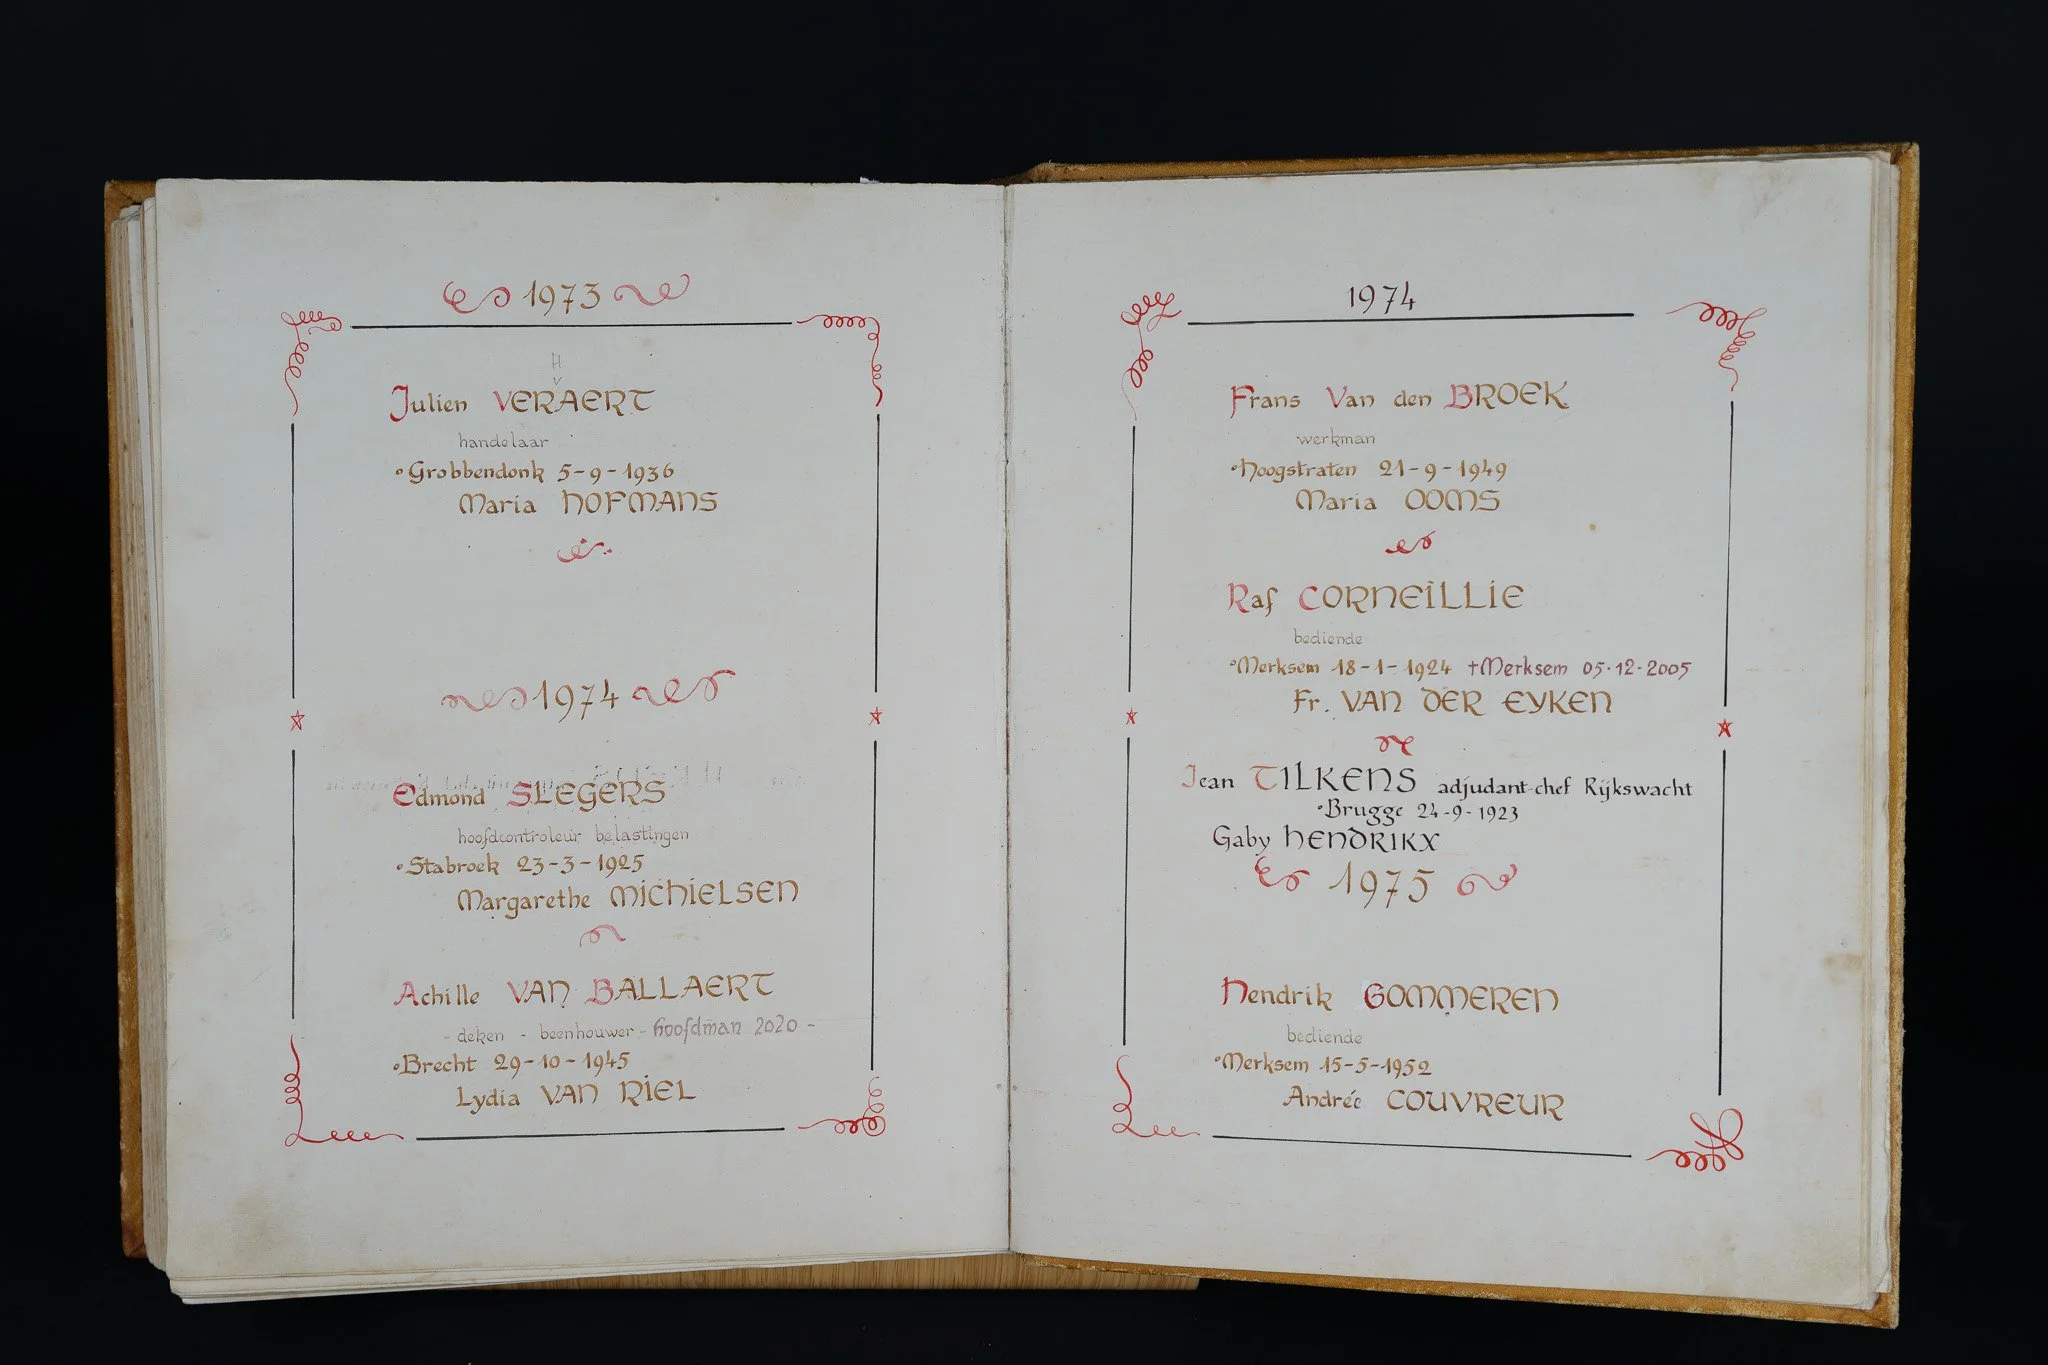 1973
H
v
Julien VERAERT
handelaar
° Grobbendonk 5-9-1936
Maria HOFMANS
1974
Edmond SLEGERS
hoofdcontroleur belastingen
° Stabroek 23-3-1925
Margarethe MICHIELSEN
Achille VAN BALLAERT
- deken - beenhouwer - Hoofdman 2020 -
° Brecht 29-10-1945
Lydia VAN RIEL
1974
Frans Van den BROEK
werkman
° Hoogstraten 21-9-1949
Maria OOMS
Raf CORNEILLIE
bediende
° Merksem 18-1-1924 † Merksem 05.12.2005
Fr. VAN DER EYKEN
Jean TILKENS adjudant-chef Rijkswacht
° Brugge 24-9-1923
Gaby HENDRIKX
1975
Hendrik GOMMEREN
bediende
° Merksem 15-5-1952
Andrée COUVREUR